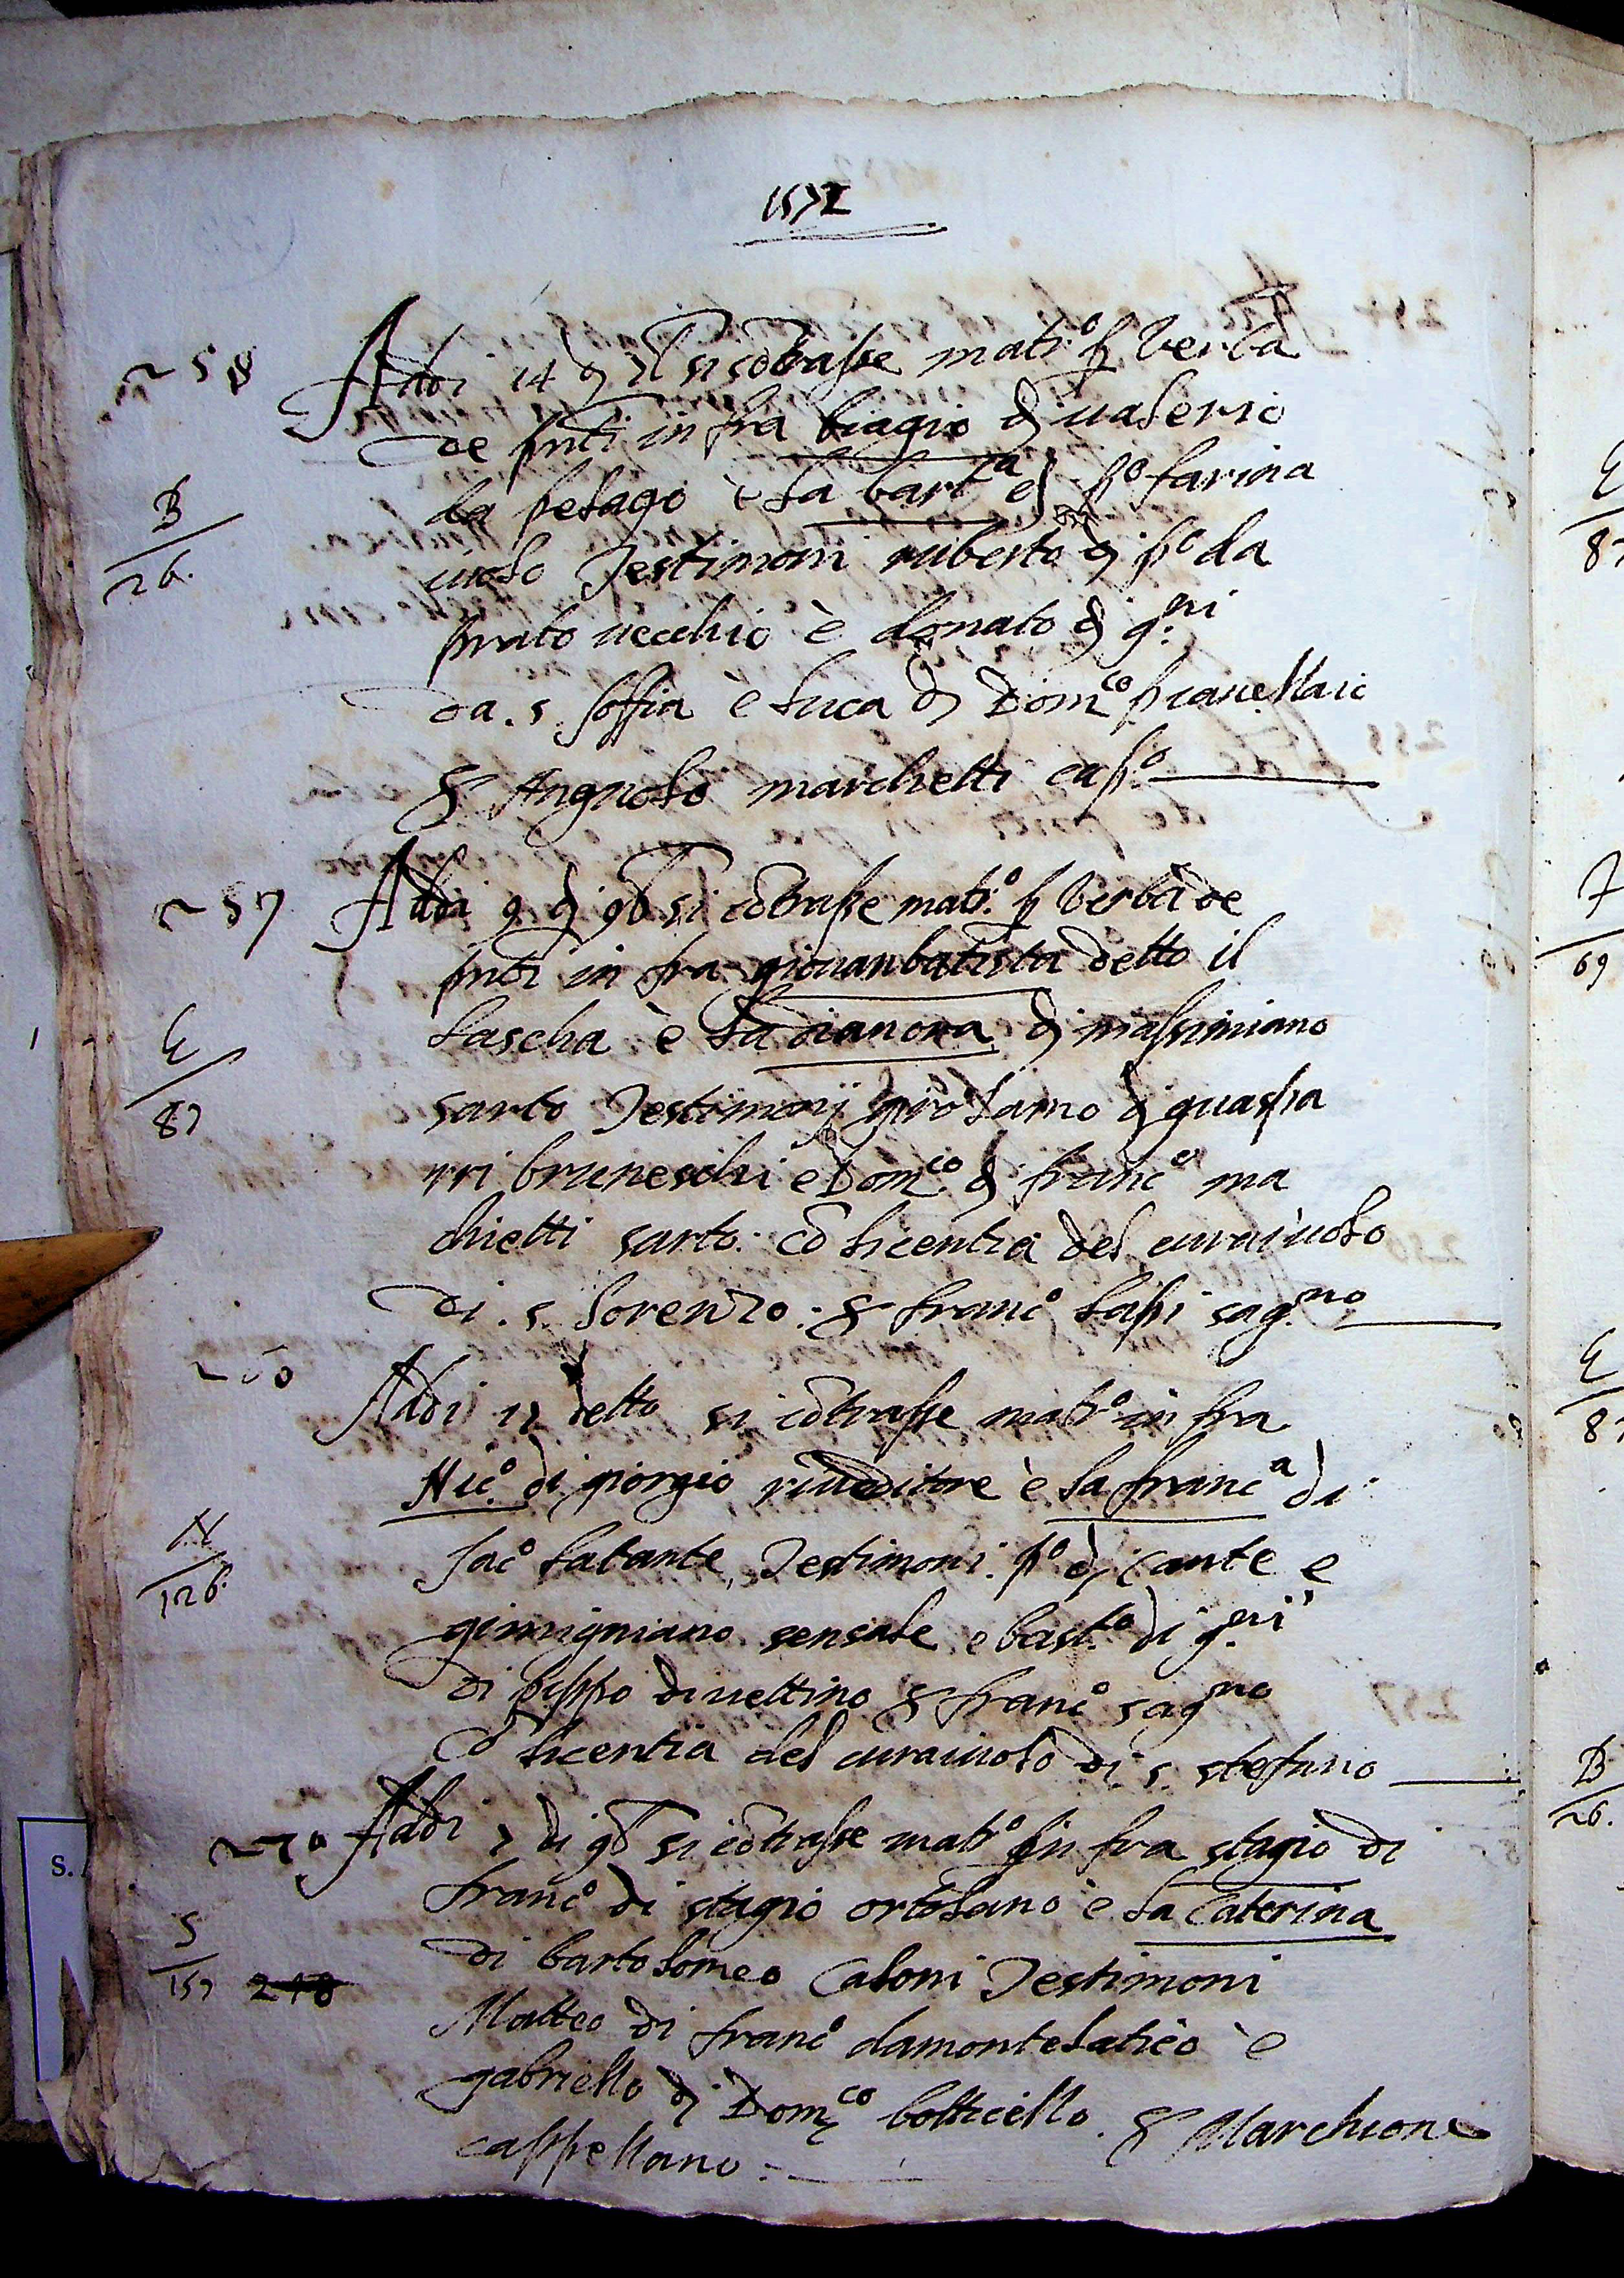 1572
258 Addi 14 di xbr si cōtrasse matr.o p verba
de pnti in fra biagio di valerio
da pelago è la bart.a di p.o farina
B
26.
iuolo Testimoni ruberto di p.o da
prato uecchio è donato di g.ni
da. s. soffia è luca di Dom.co pianellaio
& Angnolo marchetti cap.o
257 Addi 9 di 9br si cōtrasse matr.o p verba de
pnti in fra giouanbatista detto il
lascha è la dianora di massimiano
G
87
sarto Testimonij girolamo di guaspa
rri bruneschi e Dom.co di franc.o ma
chietti sarto. cō licentia del curaiuolo
di. s. lorenzo. & franc.o lapi sag.no
260
Addi 12 detto si cōtrasse matr.o in fra
Nic.o di giorgio riueditore è la franc.a di
N
126.
Jac.o latante, Testimoni. p.o di Cante e
gimigniano sensale e bast.o di g.ni
di pippo di uettino & franc.o sag.no
Cō licentia del curaiuolo di. s. stefano
270 Addi 2 di 9br si cōtrasse matr.o in fra stagio di
franc.o di stagio ortolano è la Caterina
S
157 278
di bartolomeo Caloni Testimoni
Matteo di franc.o damontelatico è
gabriello di Dom.co botticello. & Marchione
cappellano.
S.
G
87
69
G
B
26.